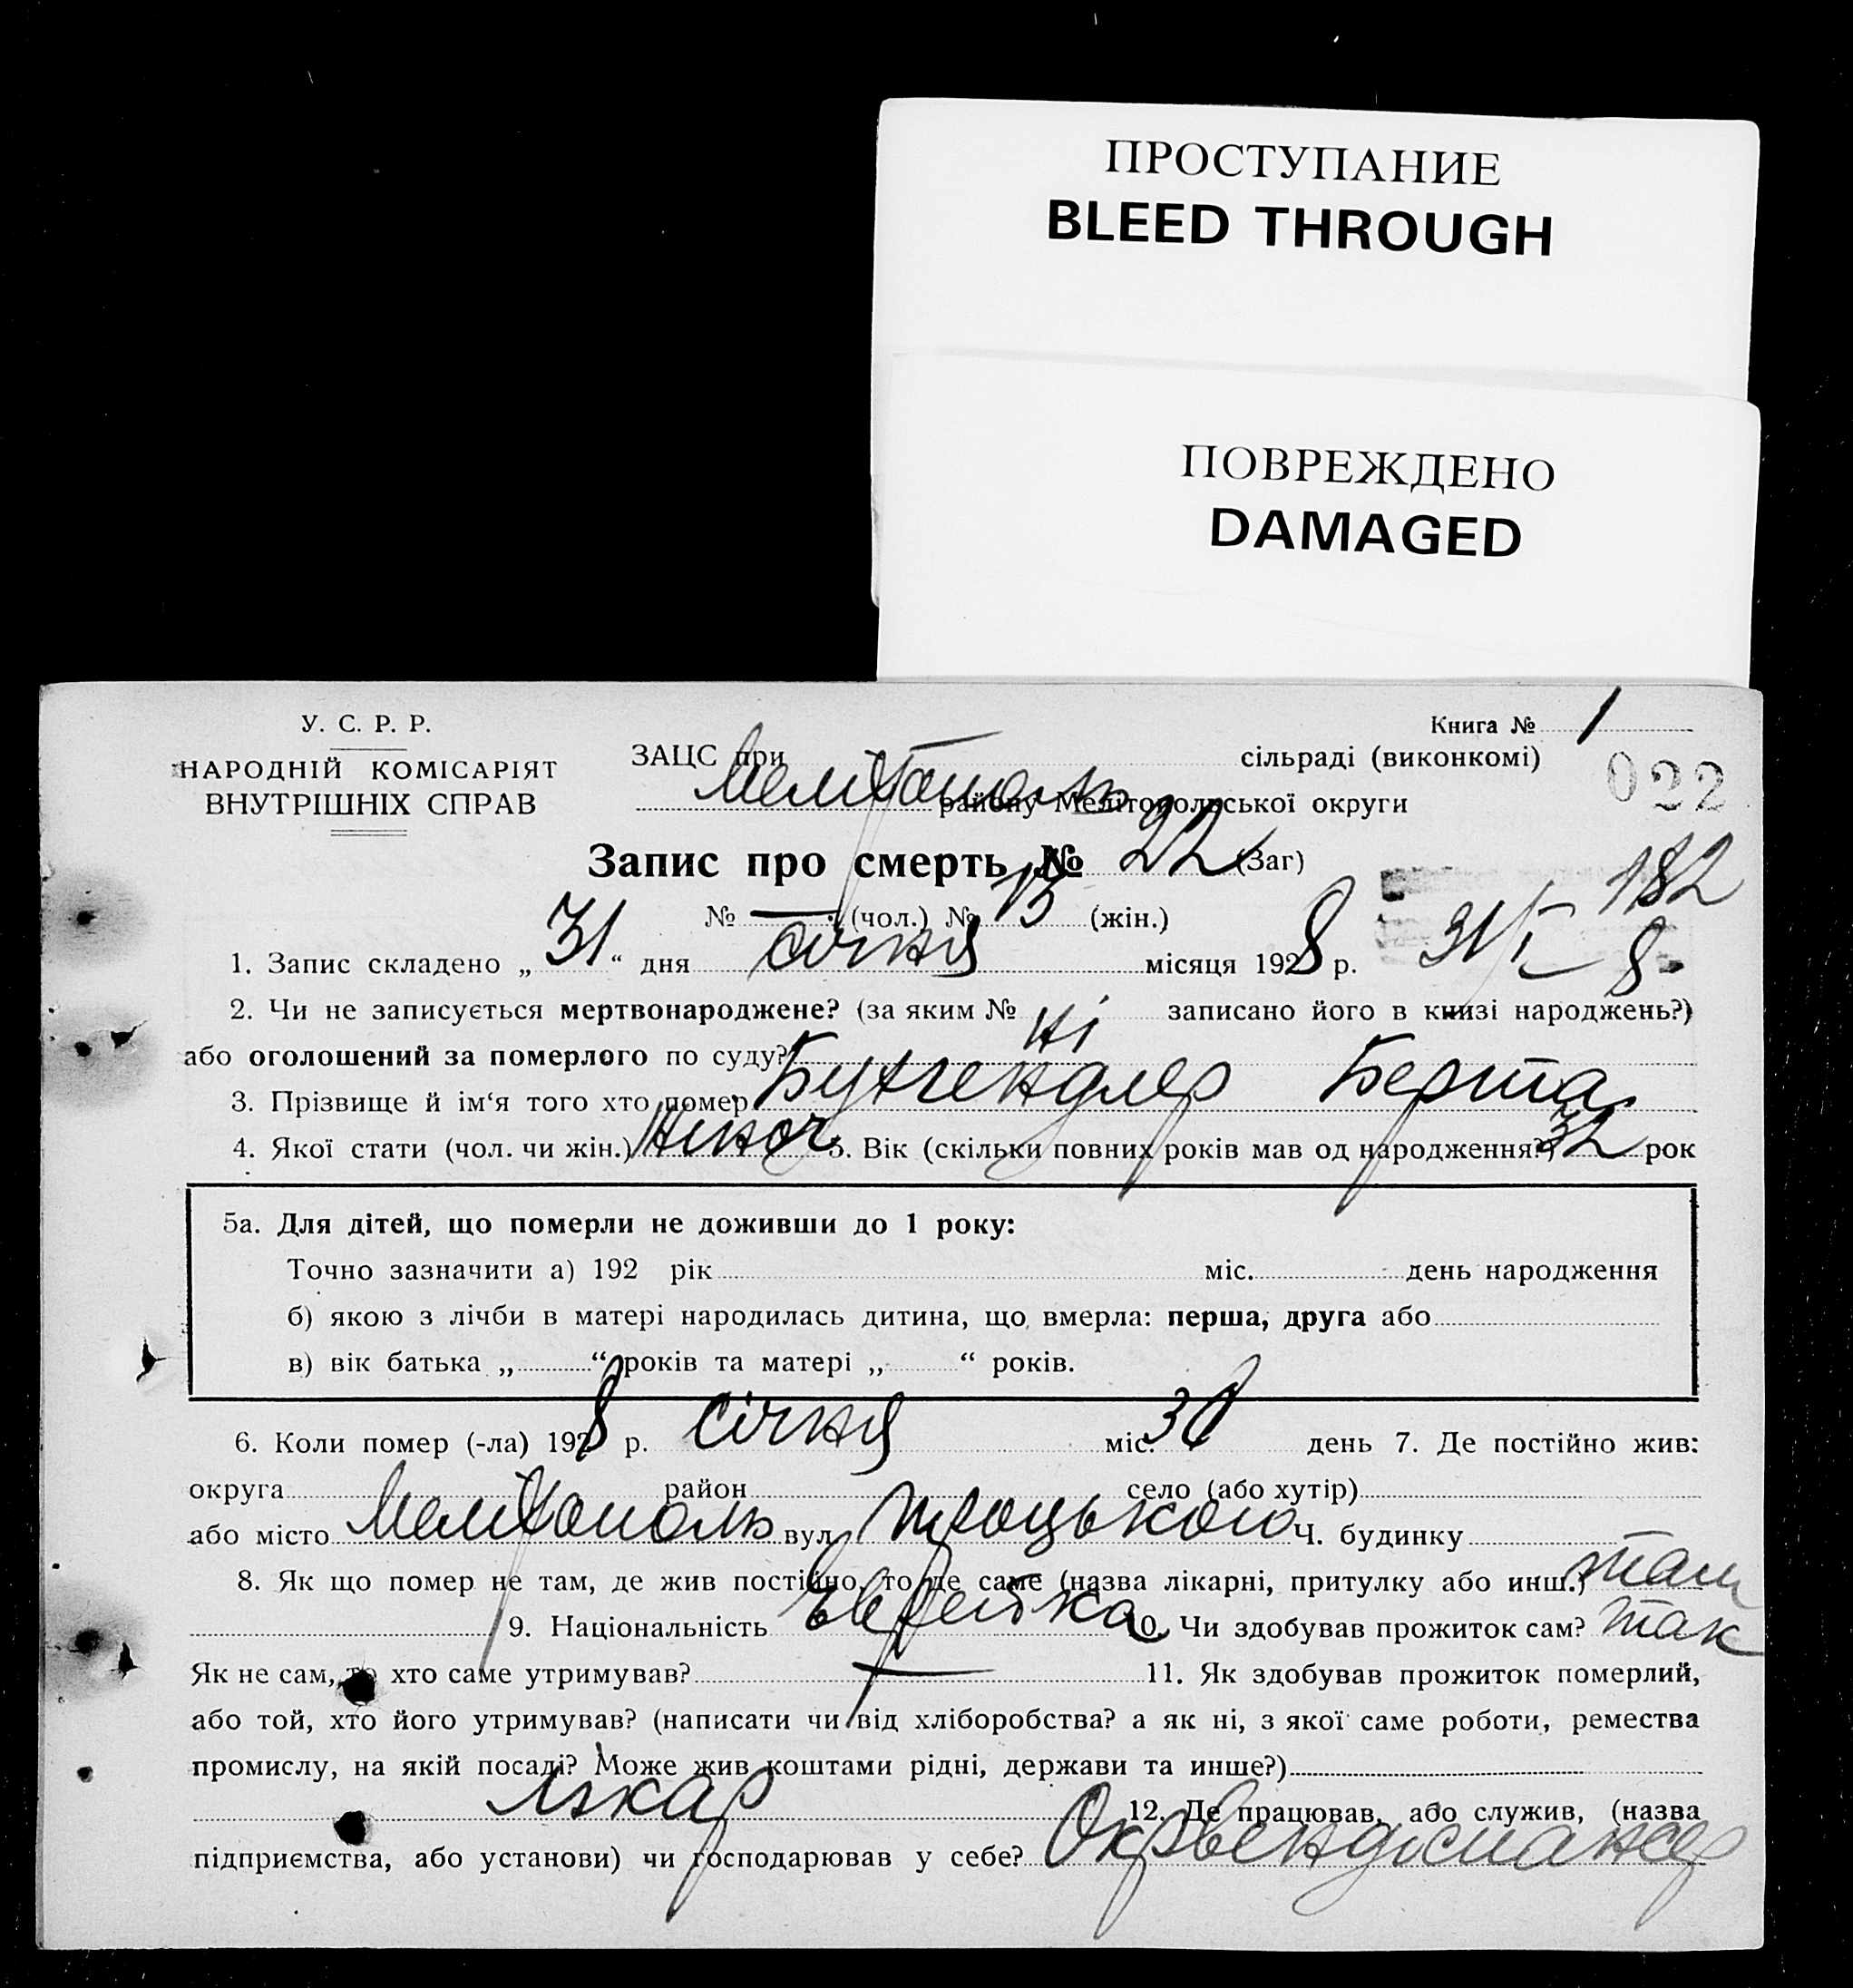 ПРОСТУПАНИЕ
BLEED THROUGH
ПОВРЕЖДЕНО
DAMAGED
У. С. Р. Р.
НАРОДНІЙ КОМІСАРІЯТ
ВНУТРІШНІХ СПРАВ
Книга № 1
ЗАЦС при Мелітополь сільраді (виконкомі)
022
району Мелітопольської округи
Запис про смерть № 22 (Заг)
182
№ — (чол.) № 13 (жін.)
31/I 8
1. Запис складено „31“ дня січня місяця 1928 р.
2. Чи не записується мертвонароджене? (за яким № ні записано його в книзі народжень?)
або оголошений за померлого по суду?
3. Прізвище й ім‘я того хто помер Берта
4. Якої стати (чол. чи жін.) жіноч 5. Вік (скільки повних років мав од народження?) 32 рок
5а. Для дітей, що померли не доживши до 1 року:
Точно зазначити а) 192 рік міс. день народження
б) якою з лічби в матері народилась дитина, що вмерла: перша, друга або
в) вік батька „ “ років та матері „ “ років.
6. Коли помер (-ла) 1928 р. січня міс. 30 день 7. Де постійно жив:
округа район село (або хутір)
або місто Мелітополь вул. Троцького Ч. будинку
8. Як що помер не там, де жив постійно, то де саме (назва лікарні, притулку або инш.) там
9. Національність Еврейка 10. Чи здобував прожиток сам? так
Як не сам, то хто саме утримував? — 11. Як здобував прожиток померлий,
або той, хто його утримував? (написати чи від хліборобства? а як ні, з якої саме роботи, ремества
промислу, на якій посаді? Може жив коштами рідні, держави та инше?)
лікар 12. Де працював, або служив, (назва
підприємства, або установи) чи господарював у себе? Окрвендиспансер